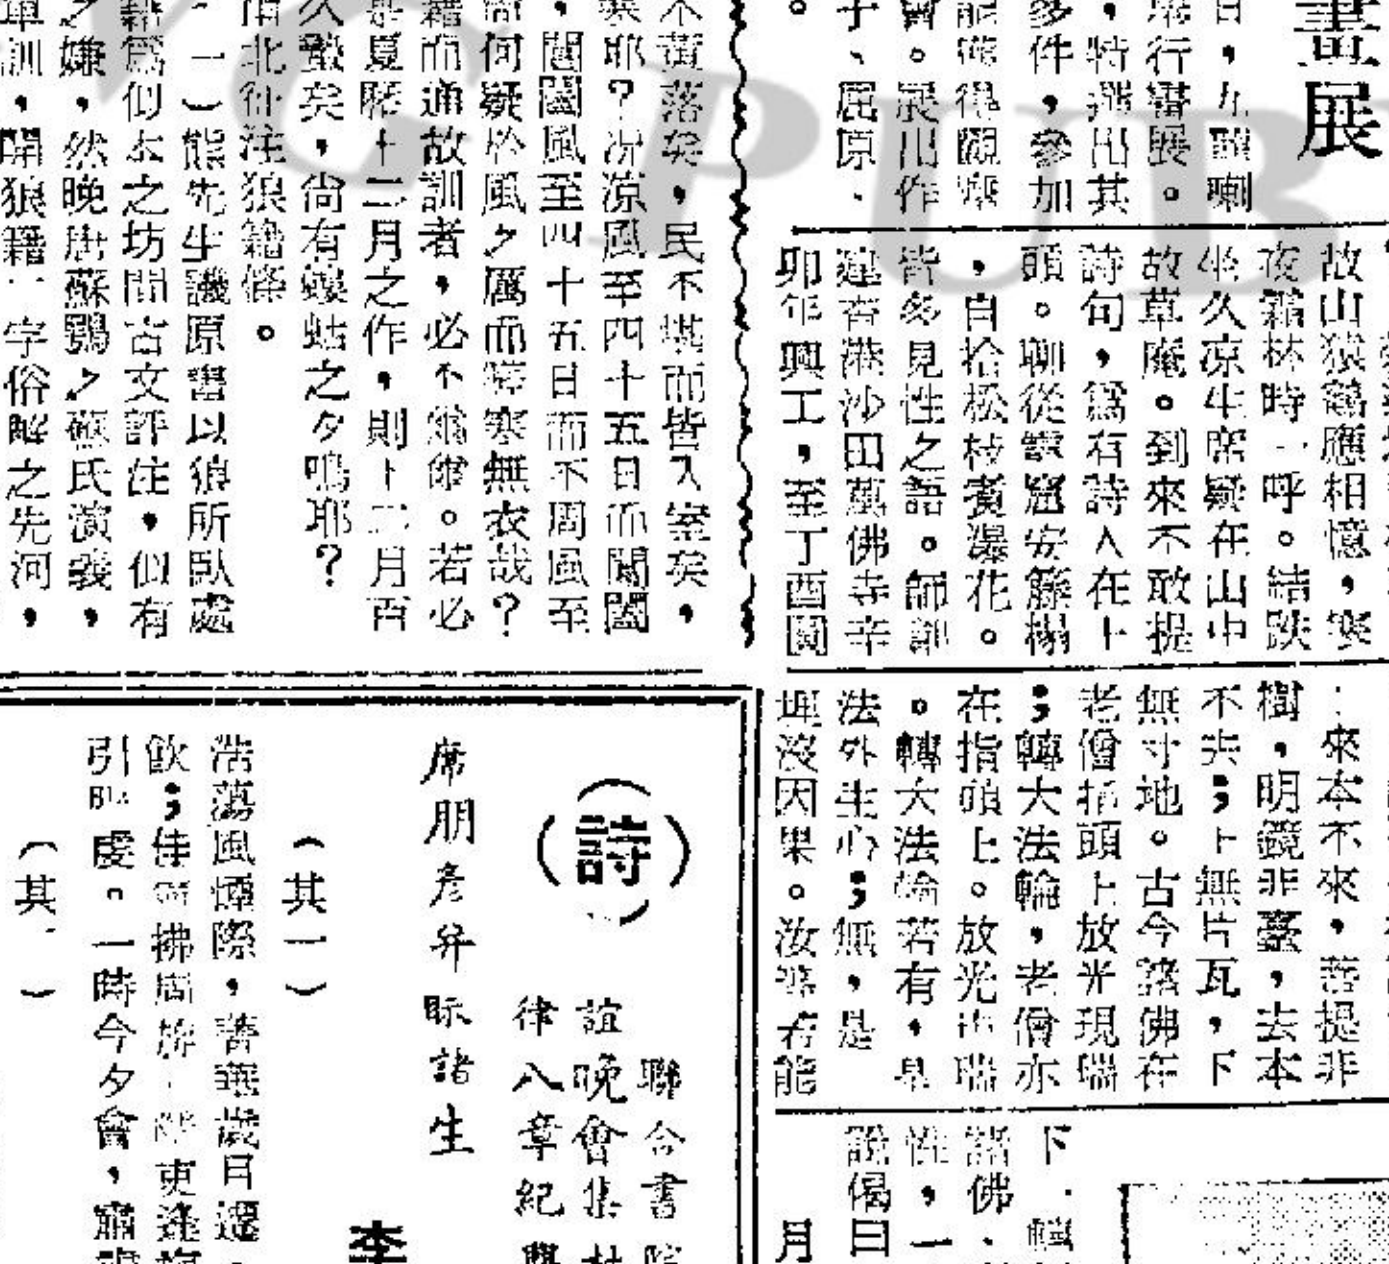 畫展
日，九龍喇
舉行書展。
，特選出其
多件，參加
能獲得觀眾
會。展出作
子、屈原、
。
故山猿鶴應相憶，寒
夜霜林時一呼。結趺
坐久凉生席疑在山中
故草庵。到來不敢提
詩句，爲有詩人在上
頭。聊從靈窟安籐榻
，自拾松枝煑瀑花。
皆多見性之語。師創
建香港沙田萬佛寺辛
卯年興工，至丁酉園
：來本不來，菩提非
樹，明鏡非臺，去本
不去；上無片瓦，下
無寸地。古今諸佛在
老僧指頭上放光現瑞
；轉大法輪，老僧亦
在指頭上。放光也瑞
。轉大法輪若有，是
法外生心；無，是
埋沒因果。汝等若能
下．轉
諸佛、
性，一
說偈曰
月
不黃落矣，民不堪而皆入室矣，
寒耶？况凉風至四十五日而閶闔
，閶闔風至四十五日而不周風至
尚何疑於風之厲而寒無衣哉？
籍而通故訓者，必不爾爾。若必
是夏曆十二月之作，則十二月百
久蟄矣，尙有螻蛄之夕鳴耶？
南北征注狼籍條。
一）熊先生譏原書以狼所臥處
籍爲似本之坊間古文評注，似有
之嫌，然晚唐蘇鶚之蘇氏演義，
單訓，開狼籍一字俗解之先河，
（詩）
聯合書院
誼晚會集杜
律八章紀興
席朋彥幷眎諸生
李
（其一）
浩蕩風煙際，蒼茫歲月遷
飲；佳拂更逢
引處。一時今夕會，
（其
PUB